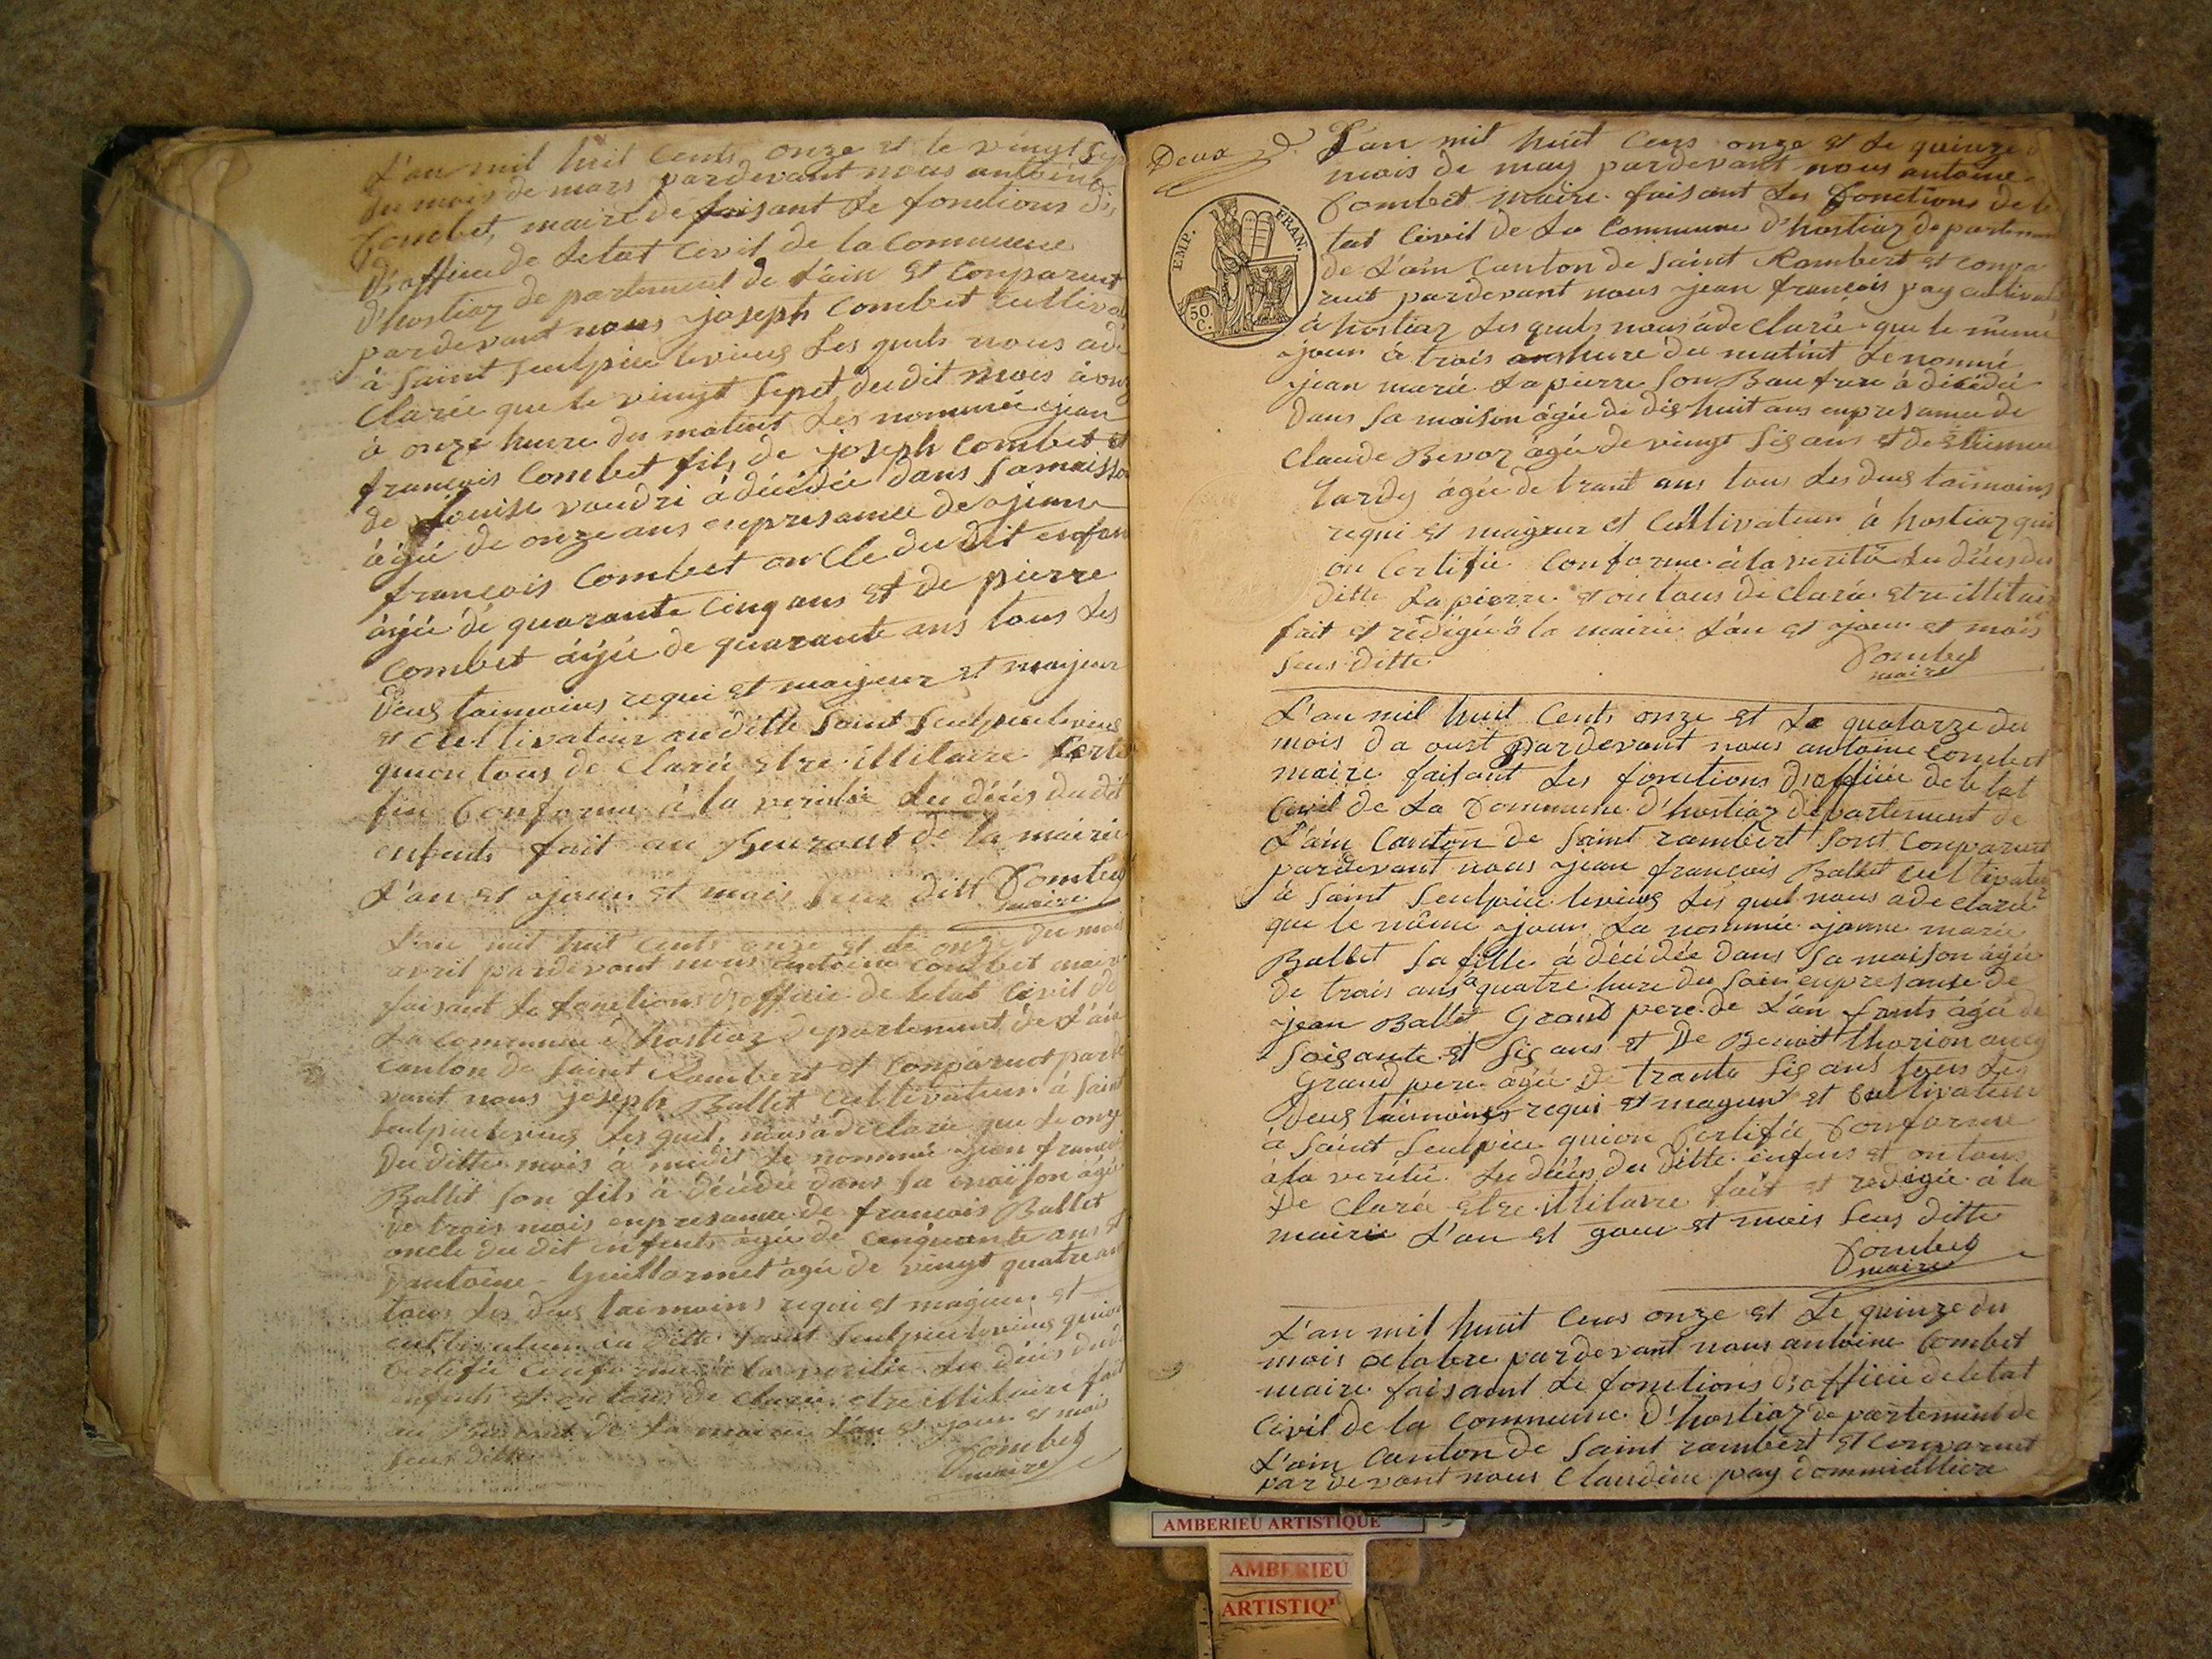 L'an mil huit Cents onze et le vingt sep
du mois de mars pardevant nous antoine
Combet, maire de faisant le fonctions di,
D'officie de letat Civil de la Commune
d'hostiaz departement de L'ain et Conparent
pardevant nous joseph Combet Cultiva
à saint Seulpice levieus Les quels nous adé
Clarée que le vingt sepet du dit mois à onz
à onze hure du matint Les nommée jean
francois Combet fils de joseph Combet et
de Louise vaudri à décédée dans Samaisson
àgée de onze ans enpresance de jean
francois Combet oncle du dit enfan
àgée de quarante Cinq ans et de pierre
Combet àgée de quarante ans tous Les
deus taimoins requi et majeur et majeur
et Cultivateur au ditte saint Seulpice levieus
quion tous de Clarée etre illitaire Certi
fiée Conforme à la veritée Les décés du dit
enfents fait au Beuraut de la mairie
L'an et jour et mois Seus ditt Combet
maire
L'an mil huit Cents onze et le onze du mois
avril pardevant nous antoine Combet maire
faisant le fonctions D'officie de letat Civil de
La commune d'hostiaz departement de L'ain
Canton de saint Rambert et Conparuot parde
vant nous joseph Ballet Cultivateur à saint
seulpice levieus Les quel nous à declarée que le onze
Du ditte mois à midit Le nommée jean francoi
Ballet son fils à décédée dans sa maison agée
de trois mois enpresance de francois Ballet
oncle du dit enfents agée de Cenquante ans et
dantoine Guillermet àgée de vingt quatre ans
tous Les deus taimoins requi et majeur et
cultivateur au ditte saint Seulpice levieus quion
Certifée Conforme à la veritée Les décés du dit
enfents et on tous de Clarée etre illitaire fait
au Beuraut de la mairie L'an et jour et mois
Seus ditte Combet
maire
Deux
EMP. FRAN.
50 C.
L'an mil huit Cens onze et le quinze d
mois de may pardevant nous antoine
Combet maire faisant Les Fonctions de le
tat Civil de La Commune d'hostiaz departemen
de L'ain Canton de saint Rambert et conpa
ruit pardevant nous jean francois pay cultivat
à hostiaz Les quels nous àde Clarée que le même
jour à trois ans hure du matint Le nommé
jean marie La pierre son Bau frere à décédée
Dans sa maison àgée de dis huit ans enpresance de
Claude Bevoz àgée de vingt sis ans et de Etienne
Tardy àgée de trant ans tous Les deus taimoins
requi et majeur et Cultivateur à hostiaz qui
on Certifiée Conforme à la veritée Les décés du
ditte La pierre et on tous de Clarée etre illitair
fait et redigée à la mairie L'an et jour et mois
Seus ditte Combet
maire
L'an mil huit Cents onze et Le quatorze du
mois d'a oust pardevant nous antoine Combet
maire faisant Les fonctions D'officie de letat
Civil de La Commune d'hostiaz departement de
L'ain Canton de saint rambert sont Conparuot
pardevant nous jean francois Ballet Cultivateu
à saint Seulpice levieus Les quel nous ade clarée
que le même jour La nommée jeanne marie
Ballet sa fille à décédée dans sa maison àgée
de trois ans à quatre hure du soir enpresance de
jean Ballet Grand pere de L'an fants àgée de
soisante et sis ans et De Benoit thorion aucy
Grand pere àgée de trante sis ans tous Les
Deus taimoins requi et majeur et Cultivateur
à saint Seulpice quion Certifée Conforme
à la veritée Les décés du ditte enfens et on tous
De Clarée etre illitaire fait et redigée à la
mairie L'an et jour et mois Seus ditte
Combet
maire
L'an mil huit Cens onze et Le quinze du
mois octobre pardevant nous antoine Combet
maire faisant Le fonctions D'officie de letat
Civil de la commune d'hostiaz departement de
L'ain Canton de saint rambert et Conparuot
pardevant nous Claudine pay dommiciliere
AMBERIEU ARTISTIQUE
AMBERIEU
ARTISTIQ